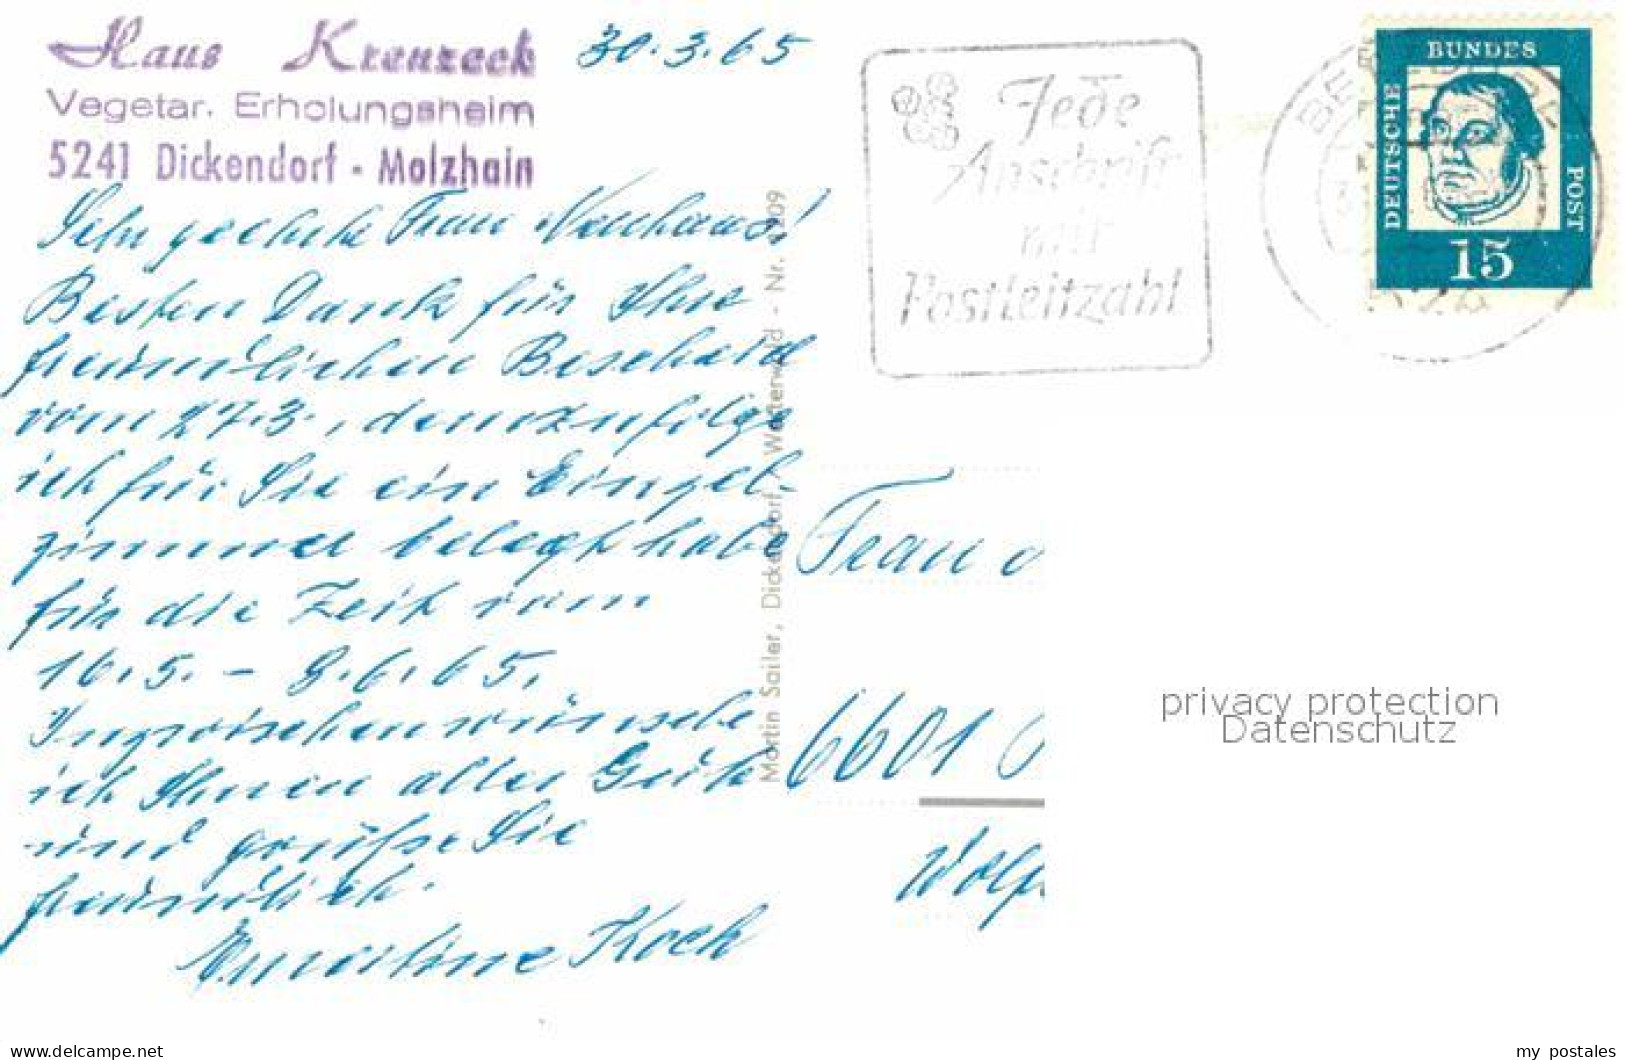 Haus Kreuzeck
Vegetar. Erholungsheim
5241 Dickendorf - Molzhain
30.3.65
Sehr geehrte Frau Neuhaus!
Besten Dank für Ihre
freundlichen Bescheid
vom 27.3., demzufolge
ich für Sie ein Einzel-
zimmer belegt habe
für die Zeit vom
16.5. - 8.6.65.
Inzwischen wünsche
ich Ihnen alles Gute
und grüße Sie
freundlich.
Koch
Martin Sailer, Dickendorf / Westerwald - Nr. 5209
Jede
Anschrift
mit
Postleitzahl
DEUTSCHE
BUNDES
POST
15
524
Frau
6601
privacy protection
Datenschutz
delcampe.net
my_postales